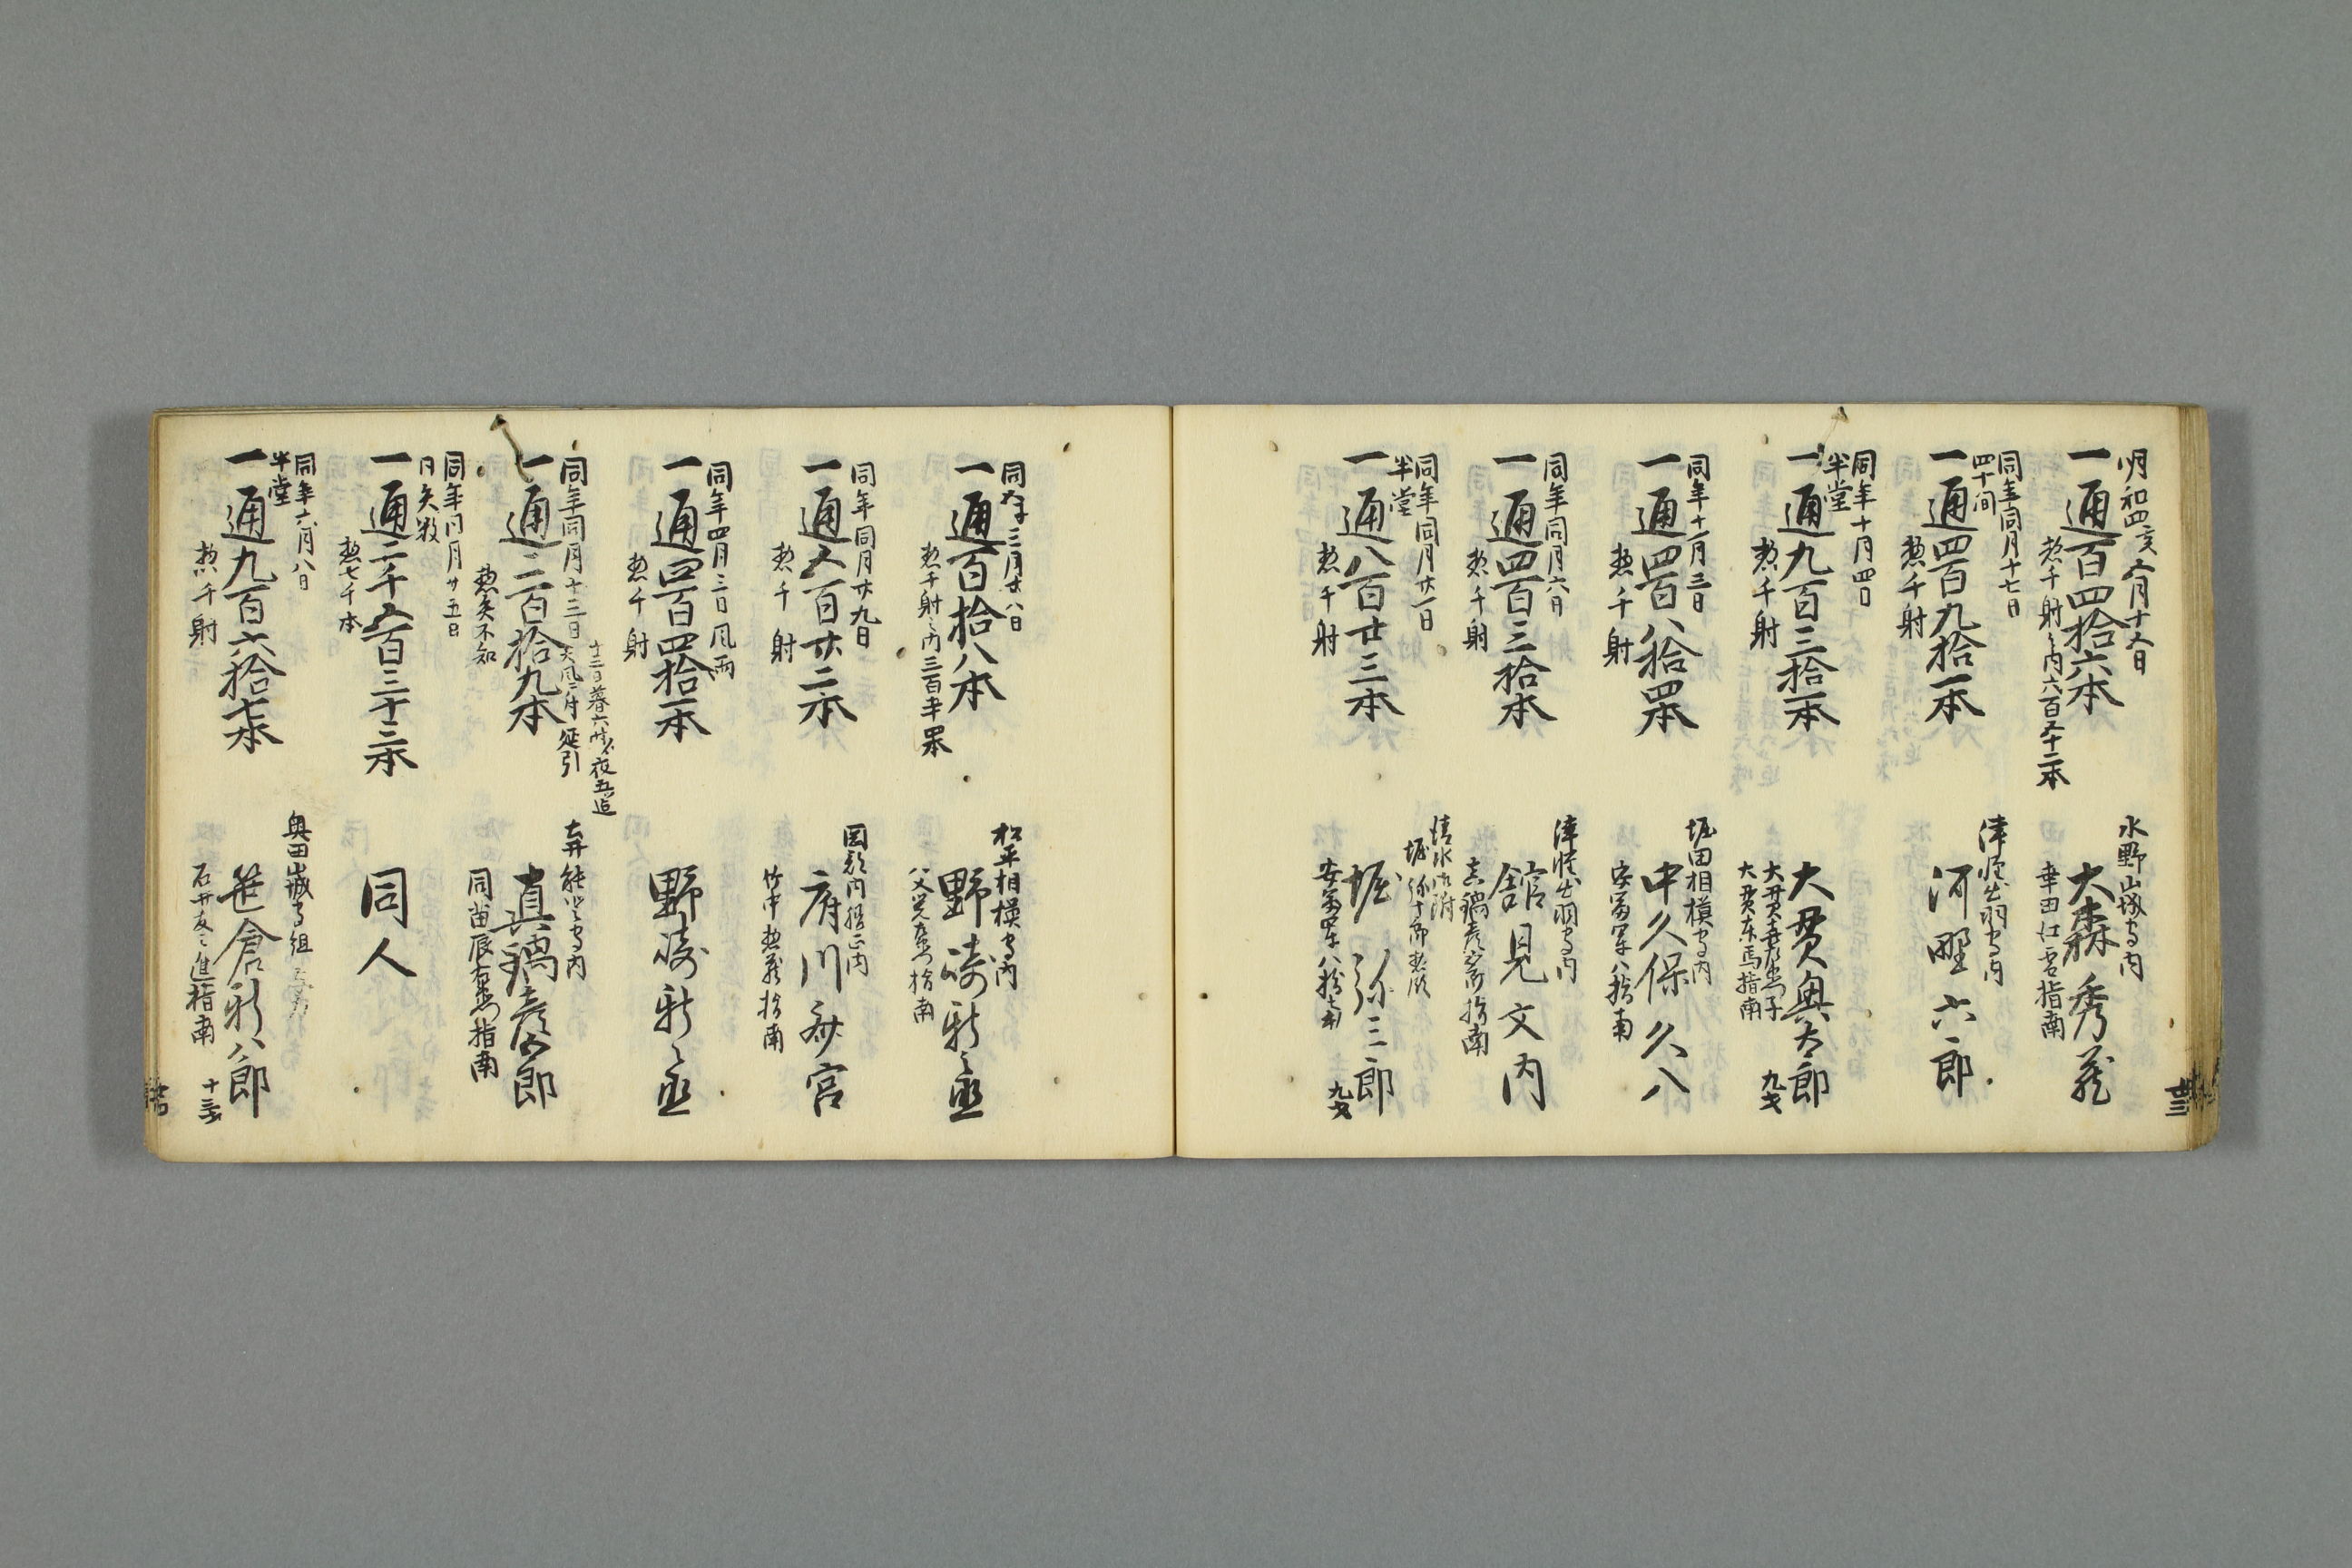 明和四亥五月十五日
一通百四拾六本
惣千射之内六百五十二本
水野山城守内
大森秀蔵
幸田仁右指南
同年同月十七日
四十間
一通四百九拾一本
惣千射
津軽出羽守内
河野六郎
同年十月四日
半堂
一通九百三拾一本
惣千射
大貫奥太郎
大貫左馬指南
九才
同年十一月三日
一通四百八拾四本
惣千射
堀田相模守内
中久保久八
安富軍八指南
同年同月六日
一通四百三拾本
惣千射
津軽出羽守内
舘見文内
指南
同年同月廿一日
半堂
一通八百廿三本
惣千射
清水御附
堀弥十郎惣領
堀弥三郎
安富軍八指南
九才
廿三
三月廿八日
一通百拾八本
惣千射之内三百五十四本
松平相模守内
野崎新之丞
指南
同年同月廿九日
一通五百廿二本
惣千射
岡部内膳正内
府川弥宮
竹中惣蔵指南
同年四月二日風雨
一通四百四拾一本
惣千射
野崎新之丞
同年同月十三日
一通二百拾九本
惣矢不知
延引
真鍋彦四郎
同苗辰右衛門指南
同年同月廿五日
日矢数
一通二千五百三十二本
惣七千本
同人
同年六月八日
半堂
一通九百六拾七本
惣千射
奥田山城守組
笹倉新八郎
石井友之進指南
十三才